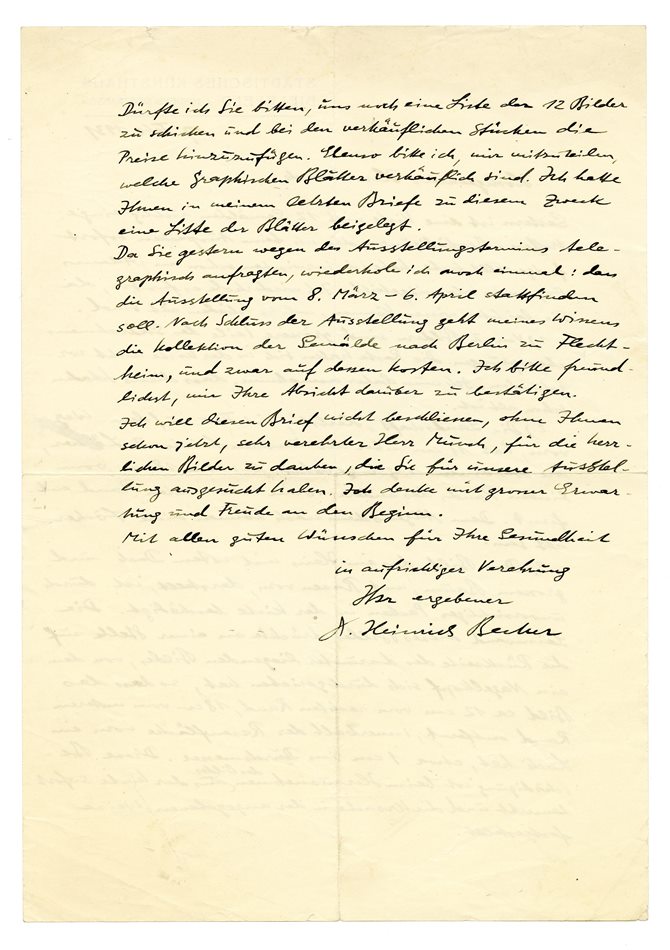 Dürfte ich Sie bitten, uns noch eine Liste der 12 Bilder
zu schicken und bei den verkäuflichen Stücken die
Preise hinzuzufügen. Ebenso bitte ich, mir mitzuteilen,
welche Graphischen Blätter verkäuflich sind. Ich hatte
Ihnen in meinem letzten Briefe zu diesem Zweck
eine Liste der Blätter beigelegt.
Da Sie gestern wegen des Ausstellungstermins tele-
graphisch anfragten, wiederhole ich noch einmal: dass
die Ausstellung vom 8. März – 6. April stattfinden
soll. Nach Schluss der Ausstellung geht meines Wissens
die Kollektion der Gemälde nach Berlin zu Flecht-
heim, und zwar auf dessen Kosten. Ich bitte freund-
lichst, mir Ihre Absicht darüber zu bestätigen.
Ich will diesen Brief nicht beschliessen, ohne Ihnen
schon jetzt, sehr verehrter Herr Munch, für die herr-
lichen Bilder zu danken, die Sie für unsere Ausstel-
lung ausgesucht haben. Ich denke mit grosser Erwar-
tung und Freude an den Beginn.
Mit allen guten Wünschen für Ihre Gesundheit
in aufrichtiger Verehrung
Ihr ergebener
A. Heinrich Becker